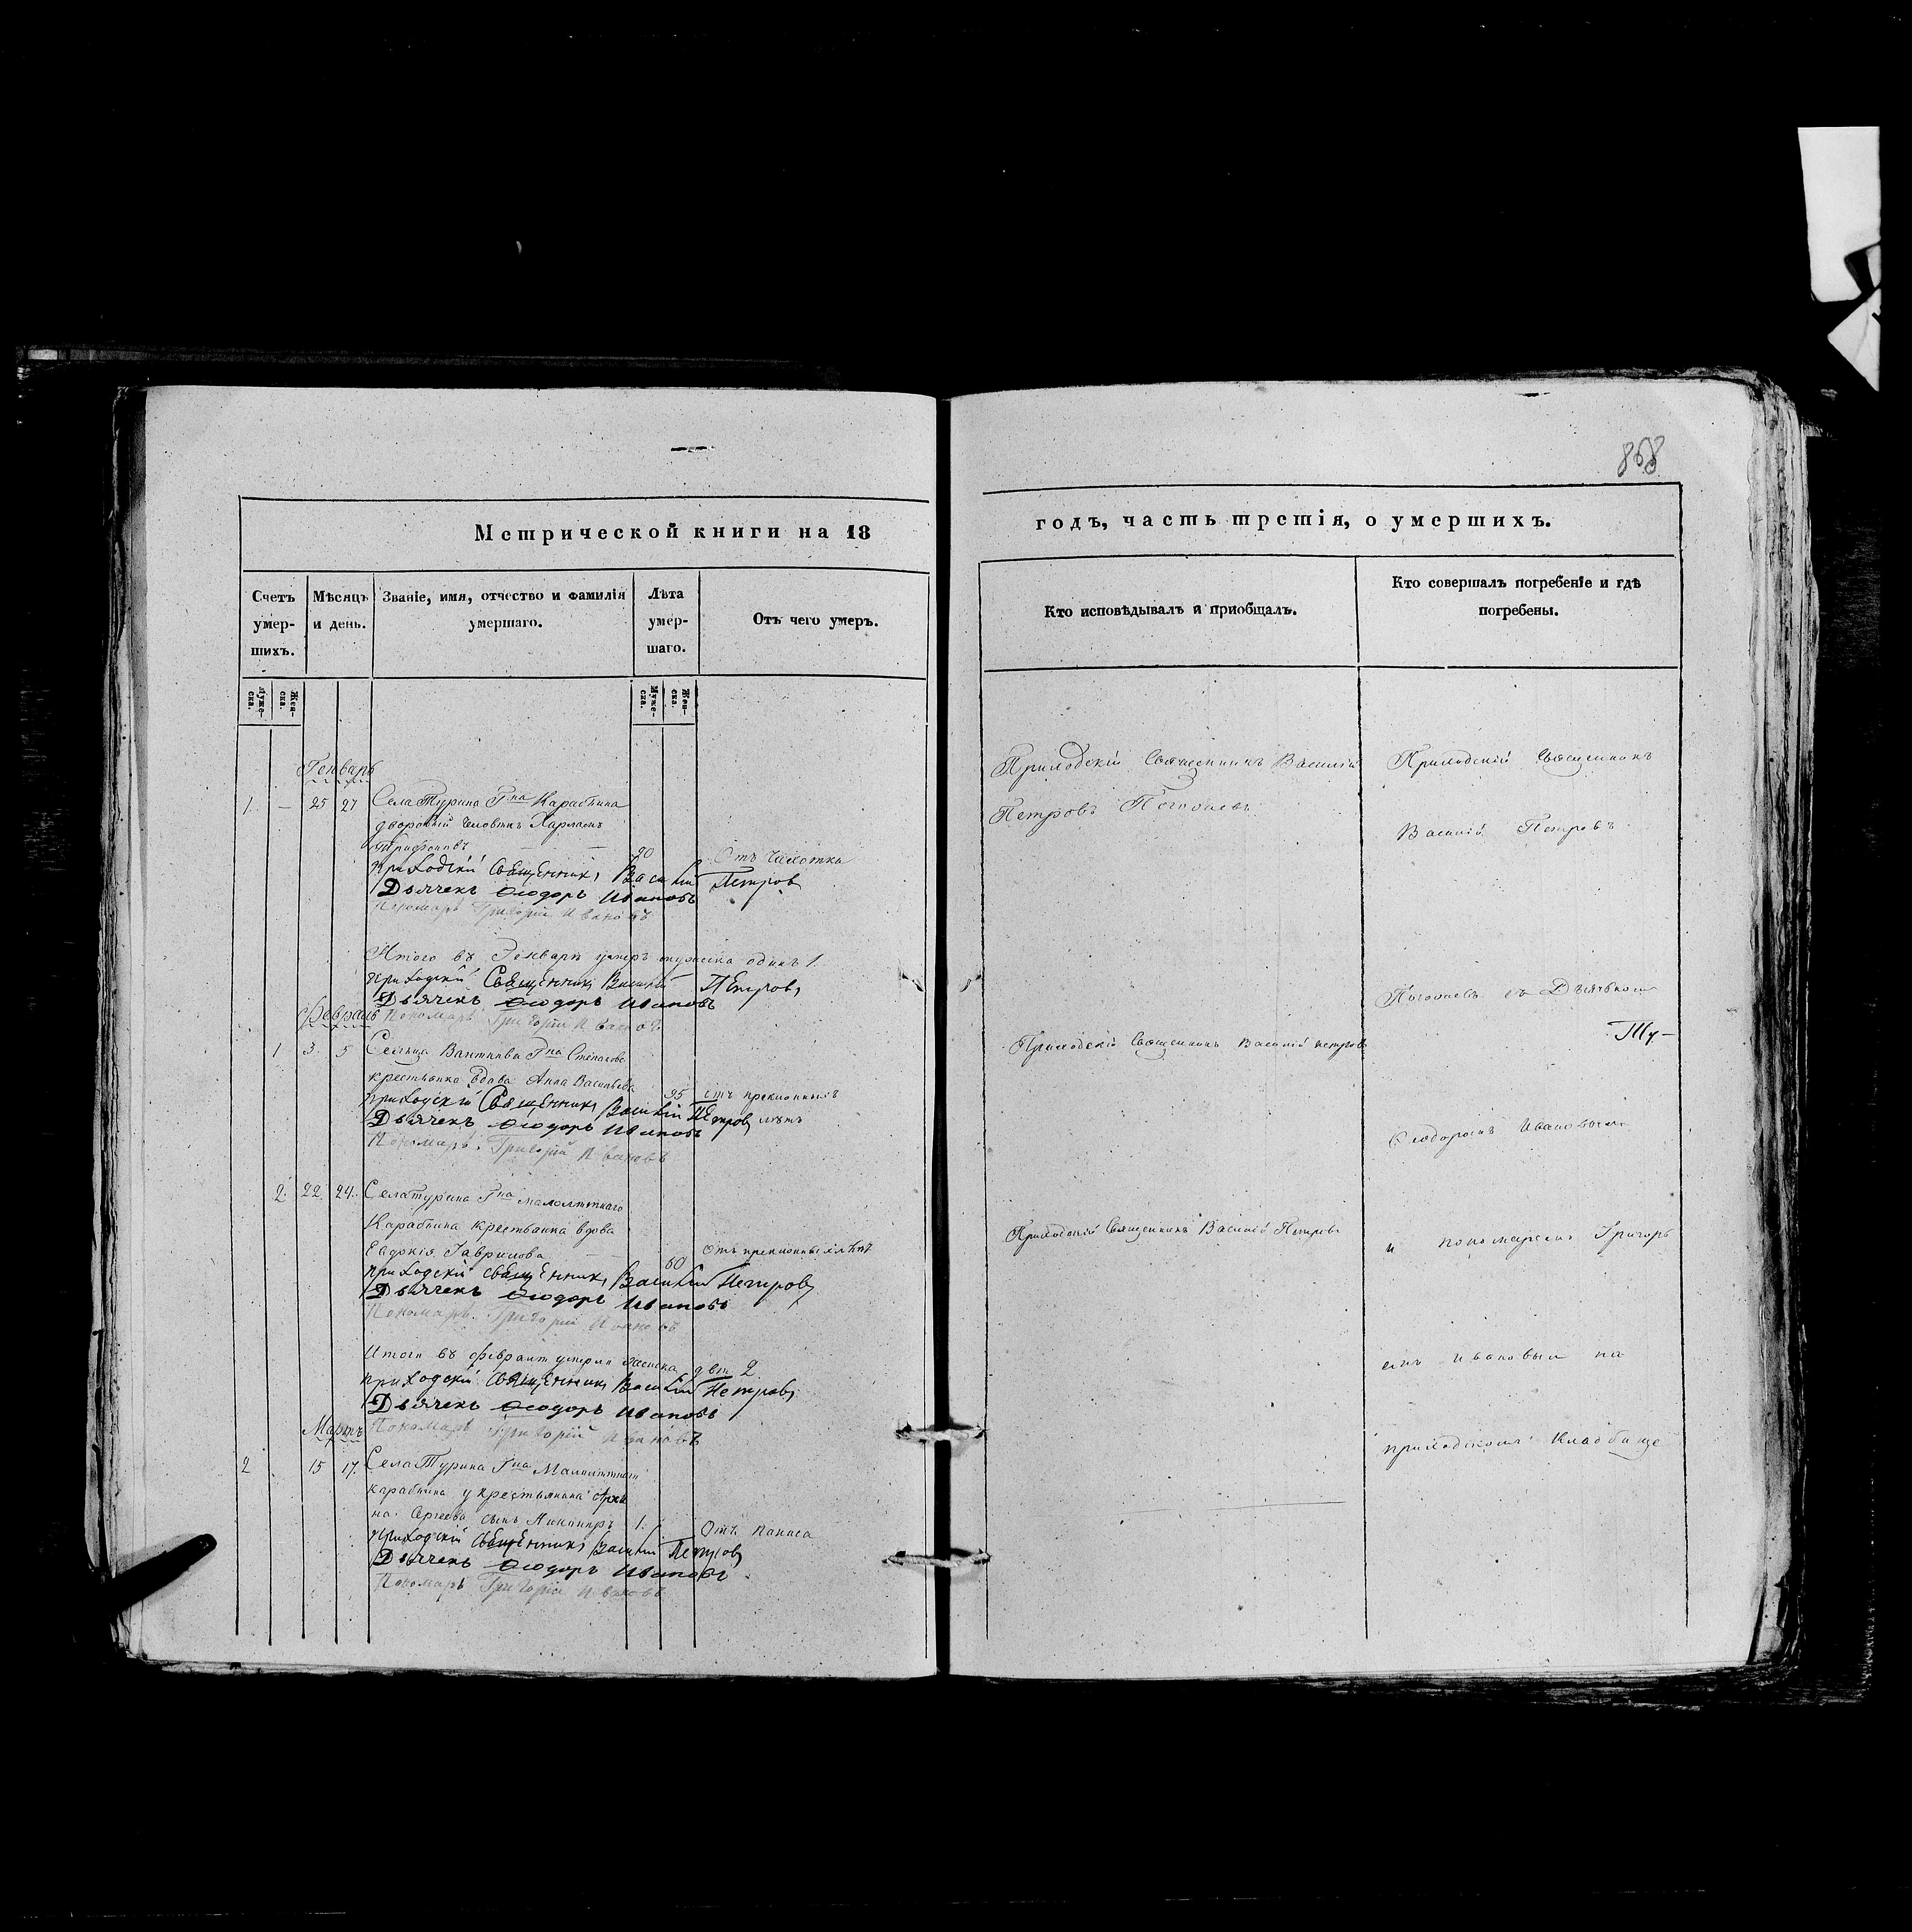 868
Метрической книги на 18
годъ, часть третія, о умершихъ.
Счетъ умер-шихъ.
Мѣсяцъ и день.
Званіе, имя, отчество и фамилія умершаго.
Лѣта умер-шаго.
Отъ чего умеръ.
Кто исповѣдывалъ и приобщалъ.
Кто совершалъ погребеніе и гдѣ погребены.
Муже-ска.
Жен-ска.
Муже-ска.
Жен-ска.
Генварь
1. — 25 27 Села Турина Гна Карабьина
дворовый человѣкъ Харламъ
Трифоновъ — — 90 Отъ чахотки
приходскій Священникъ Василій Петровъ
Дьячекъ Ѳеодоръ Ивановъ
Пономарь Григорій Ивановъ
Итого въ Генварѣ умеръ мужеска одинъ 1
приходскій Священникъ Василій Петровъ
Дьячекъ Ѳеодоръ Ивановъ
Февраль Пономарь Григорій Ивановъ
1 3 5 Сельца Гна Степанова
крестьянка вдова Анна Васильева 95 отъ преклонныхъ
приходскій Священникъ Василій Петровъ лѣтъ
Дьячекъ Ѳеодоръ Ивановъ
Пономарь Григорій Ивановъ
2. 22 24. Села Турина Гна малолѣтнаго
Карабьина крестьянка вдова
Евдокія Гаврилова — 60 Отъ преклонныхъ лѣтъ
приходскій священникъ Василій Петровъ
Дьячекъ Ѳеодоръ Ивановъ
Пономарь Григорій Ивановъ
Итого въ Февралѣ умерли женска двѣ 2
приходскій Священникъ Василій Петровъ
Дьячекъ Ѳеодоръ Ивановъ
Мартъ Пономарь Григорій Ивановъ
2 15 17. Села Турина Гна Малолѣтнаго
карабьина у крестьянина
на Сергѣева сынъ 1. Отъ
приходскій Священникъ Василій Петровъ
Дьячекъ Ѳеодоръ Ивановъ
Пономарь Григорій Ивановъ
Приходскій Священникъ Василій
Петровъ
Приходскій Священникъ Василій петровъ
Приходскій Священникъ Василій Петровъ
Приходскій Священникъ
Василій Петровъ
съ Дьячкомъ
Ѳеодоромъ Ивановымъ
и пономаремъ Григорь
емъ Ивановым на
приходскомъ Кладбище
Ту-